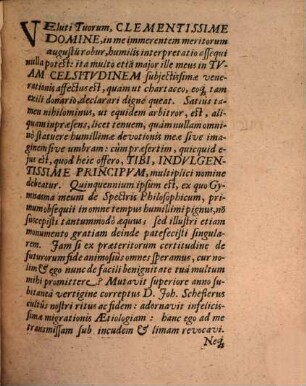 VEluti Tuorum, CLEMENTISSIME
DOMINE, in me immerentem meritorum
augustũ robur, humilis interpretatio assequi
nulla potest: ita multo etiã major ille meus in TU-
AM CELSITUDINEM subjectissimæ vene-
rationis affectus est, quam ut chartaceo, eoq́; tam
exili donario, declarari digne queat. Satius ta-
meu nihilominus, ut equidem arbitror, est, ali-
quam in præsens, licet tenuem, quàm nullam omni-
no statuere humillimæ devotionis meæ sive ima-
ginem sive umbram: cùm præsertim, quicquid e-
jus est, quod heic offero, TIBI, INDULGEN-
TISSIME PRINCIPUM, multiplici nomine
debeatur. Quinquennium ipsum est, ex quo Gy-
mnasma meum de Spectris Philosophicum, pri-
mum obsequii in omne tempus humillimi pignus, nõ
suscepisti tantummodò æquus, sed illustri etiam
monumento gratiam deinde patefecisti singula-
rem. Jam si ex præteritorum certitudine de
futurorum fide animosiùs omnes speramus, cur no-
lim & ego nunc de facili benignitate tuâ multum
mihi promittere? Mutavit superiore anno su-
bitaneâ vertigine correptus D. Joh. Scheflerus
cultũs nostri ritus ac fidem: adornavit infelicis-
simæ migrationis Ætiologiam: hanc ego ad me
transmissam sub incudem & limam revocavi.
Neq́;